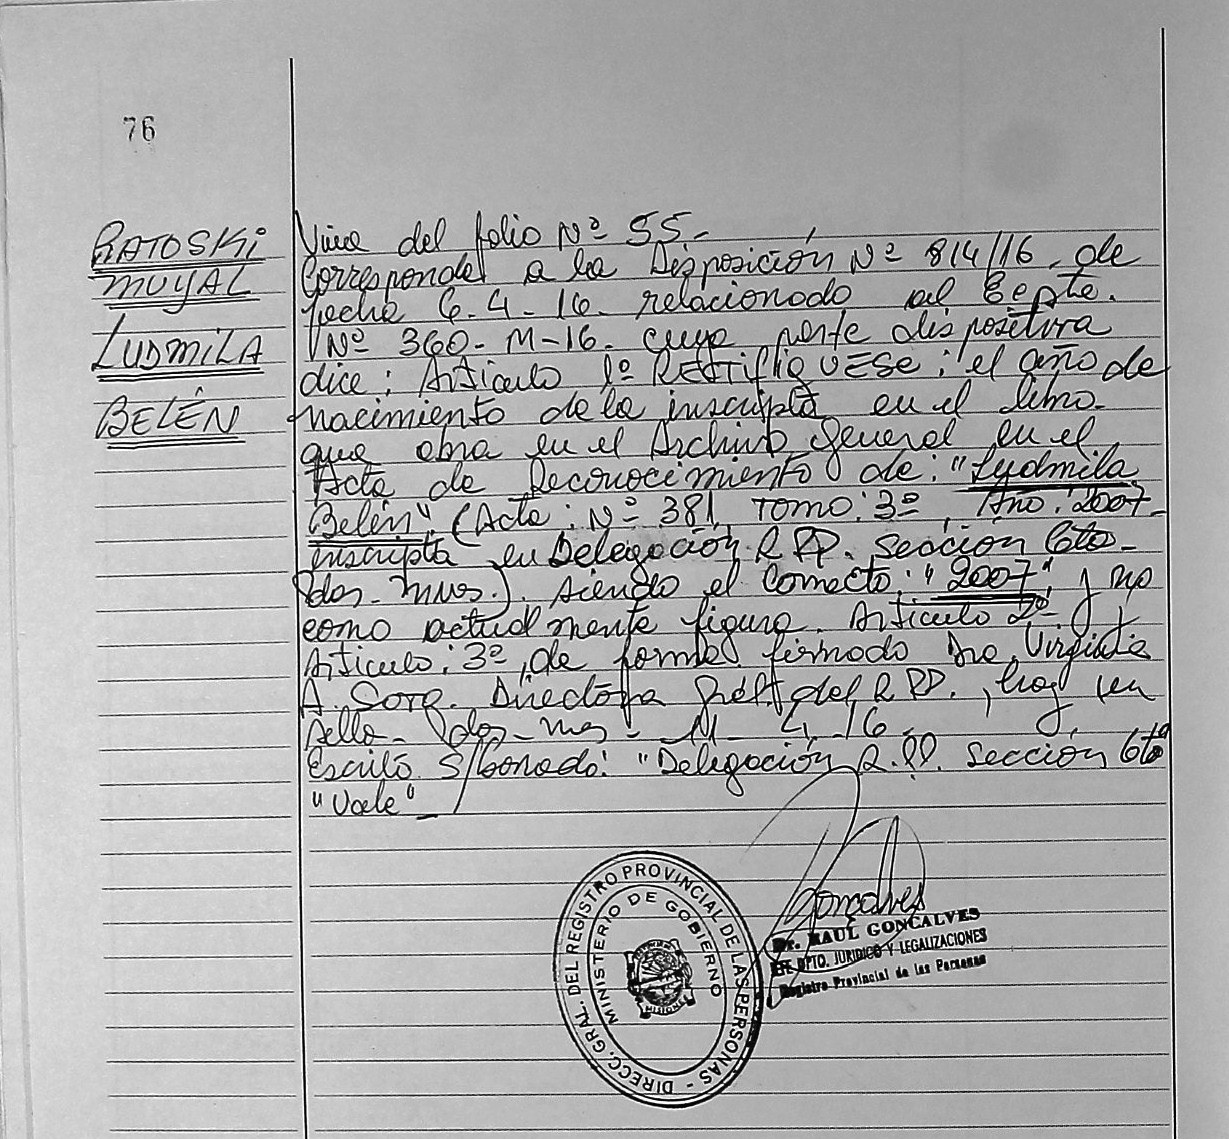 76
RATOSKI
MUYAL
LUDMILA
BELÉN
Viene del folio Nº 55.-
Corresponde a la Disposición Nº 814/16, de
fecha 6-4-16. relacionado al Expte.
Nº 360-M-16- cuya parte dispositiva
dice: Artículo 1º RECTIFIQUESE: el año de
nacimiento de la inscripta en el libro
que obra en el Archivo general en el
Acta de Reconocimiento de: "Ludmila
Belén" (Acta: Nº 381, Tomo: 3º, Año: 2007-
inscripta en Delegación R.PP. Sección 6ta-
Pdas- Mnes.). siendo el correcto: "2007" y no
como actualmente figura. Artículo 2º y
Artículo: 3º, de forma firmado Dra. Virginia
A. Directora del R.PP., hay un
sello- Pdas- - 11-4-16.-
Escrito S/borrado: "Delegación R.PP. Sección 6ta"
"Vale"-
Goncalves
Dr. RAUL GONCALVES
JEFE DPTO. JURIDICO Y LEGALIZACIONES
Registro Provincial de las Personas
DIRECC. GRAL. DEL REGISTRO PROVINCIAL DE LAS PERSONAS -
MINISTERIO DE GOBIERNO
MISIONES